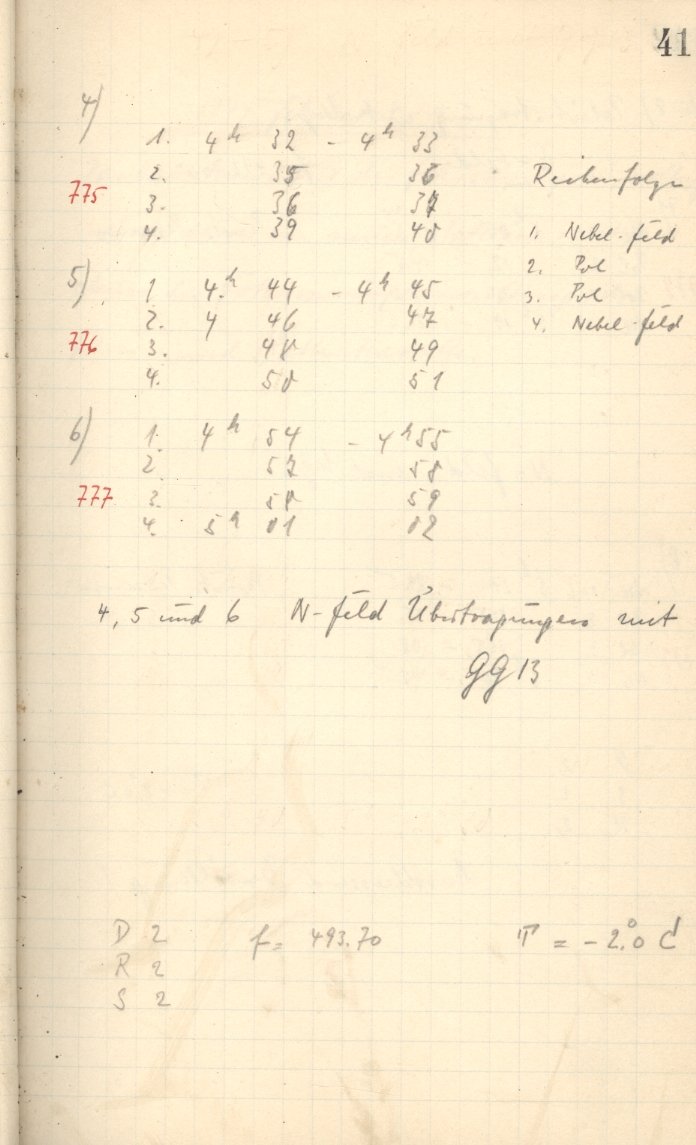 41
4)
1. 4h 32 - 4h 33
2. 35 36
775
3. 36 37
4. 39 40
Reihenfolge
1. Nebel-feld
2. Pol
3. Pol
4. Nebel-feld
5)
1 4.h 44 - 4h 45
2. 4 46 47
776
3. 48 49
4. 50 51
6)
1. 4h 54 - 4h 55
2. 57 58
777
3. 58 59
4. 5h 01 02
4, 5 und 6 N-feld Übertragungen mit
GG 13
D 2 f = 493.70 T = -2.°0 C
R 2
S 2